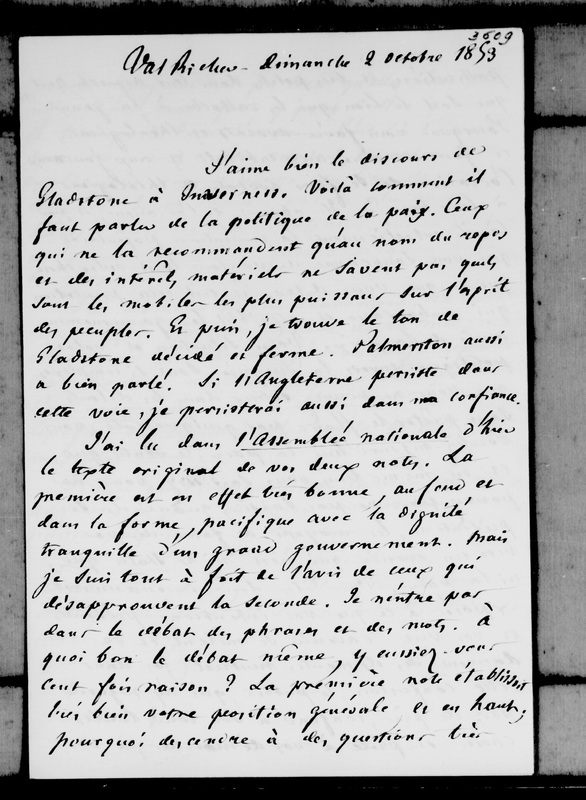 3609
Val Richer - Dimanche 2 octobre 1853
J'aime bien le discours de
Gladstone à Inverness. Voilà comment il
faut parler de la politique de la paix. Ceux
qui ne la recommandent qu'au nom du repos
et des intérêts matériels ne savent pas quels
sont les mobiles les plus puissans sur l'esprit
des peuples. Et puis, je trouve le ton de
Gladstone décidé et ferme. Palmerston aussi
a bien parlé. Si l'Angleterre persiste dans
cette voie, je persisterai aussi dans ma confiance.
J'ai lu dans l'Assemblée nationale d'hier
le texte original de vos deux notes. La
première est en effet très bonne, au fond et
dans la forme, pacifique avec la dignité
tranquille d'un grand gouvernement. Mais
je suis tout à fait de l'avis de ceux qui
désapprouvent la seconde. Je n'entre pas
dans le débat des phrases et des mots. À
quoi bon le débat même, y eussiez-vous
cent fois raison ? La première note établissoit
très bien votre position générale et en haut,
pourquoi descendre à des questions très